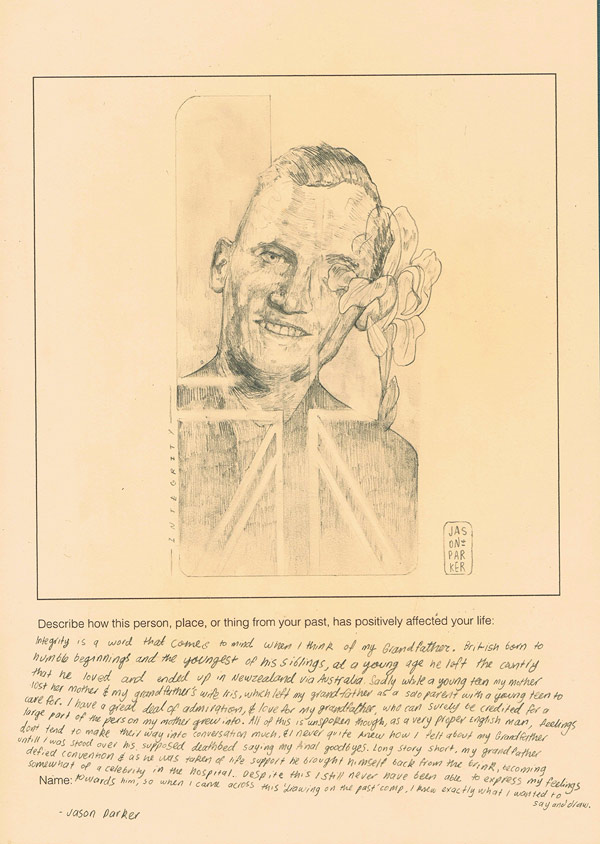 INTEGRITY
JAS
ON
PAR
KER
Describe how this person, place, or thing from your past, has positively affected your life:
Integrity is a word that comes to mind when I think of my Grandfather. British born to
humble beginnings and the youngest of his siblings, at a young age he left the country
that he loved and ended up in Newzealand via Australia. Sadly while a young teen my mother
lost her mother & my grandfather's wife Iris, which left my grandfather as a solo parent with a young teen to
care for. I have a great deal of admiration, & love for my grandfather, who can surely be credited for a
large part of the person my mother grew into. All of this is unspoken though, as a very proper English man, feelings
dont tend to make their way into conversation much, & I never quite knew how I felt about my Grandfather
untill I was stood over his supposed deathbed saying my final goodbyes. Long story short, my grandfather
defied convention & as he was taken of life support he brought himself back from the brink, becoming
somewhat of a celebrity in the hospital. Despite this I still never have been able to express my feelings
Name: towards him, so when I came across this 'drawing on the past' comp, I knew exactly what I wanted to
say and draw.
- Jason Parker